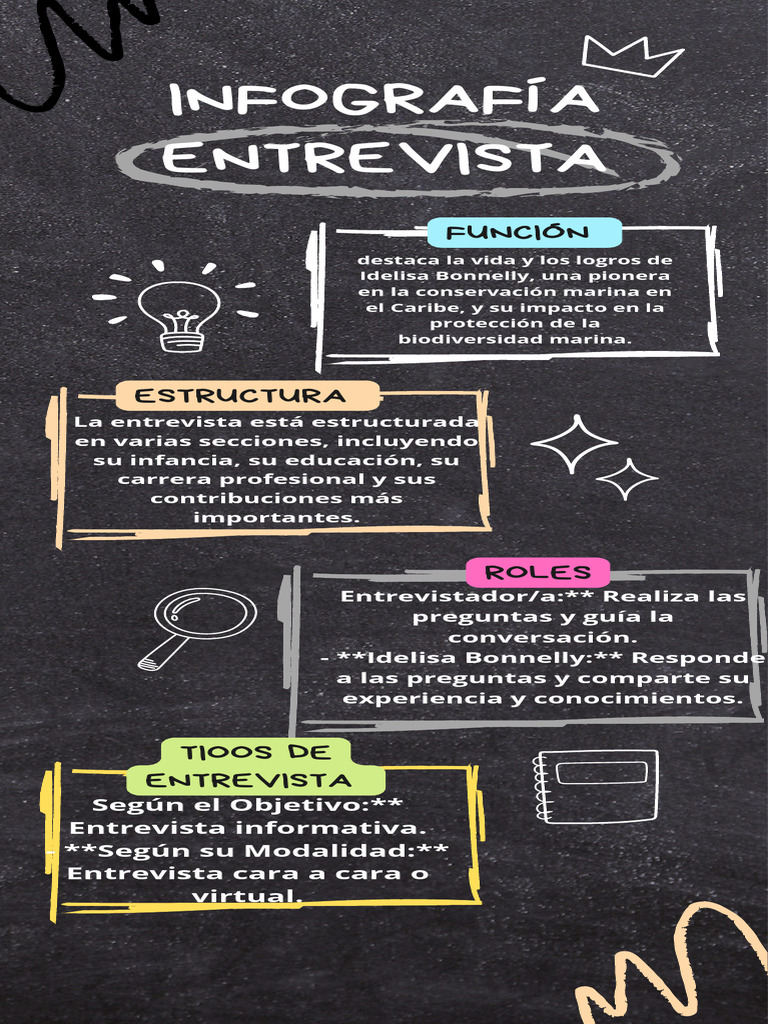 INFOGRAFÍA
ENTREVISTA
FUNCIÓN
destaca la vida y los logros de
Idelisa Bonnelly, una pionera
en la conservación marina en
el Caribe, y su impacto en la
protección de la
biodiversidad marina.
ESTRUCTURA
La entrevista está estructurada
en varias secciones, incluyendo
su infancia, su educación, su
carrera profesional y sus
contribuciones más
importantes.
ROLES
Entrevistador/a:** Realiza las
preguntas y guía la
conversación.
- **Idelisa Bonnelly:** Responde
a las preguntas y comparte su
experiencia y conocimientos.
TIOOS DE
ENTREVISTA
Según el Objetivo:**
Entrevista informativa.
- **Según su Modalidad:**
Entrevista cara a cara o
virtual.